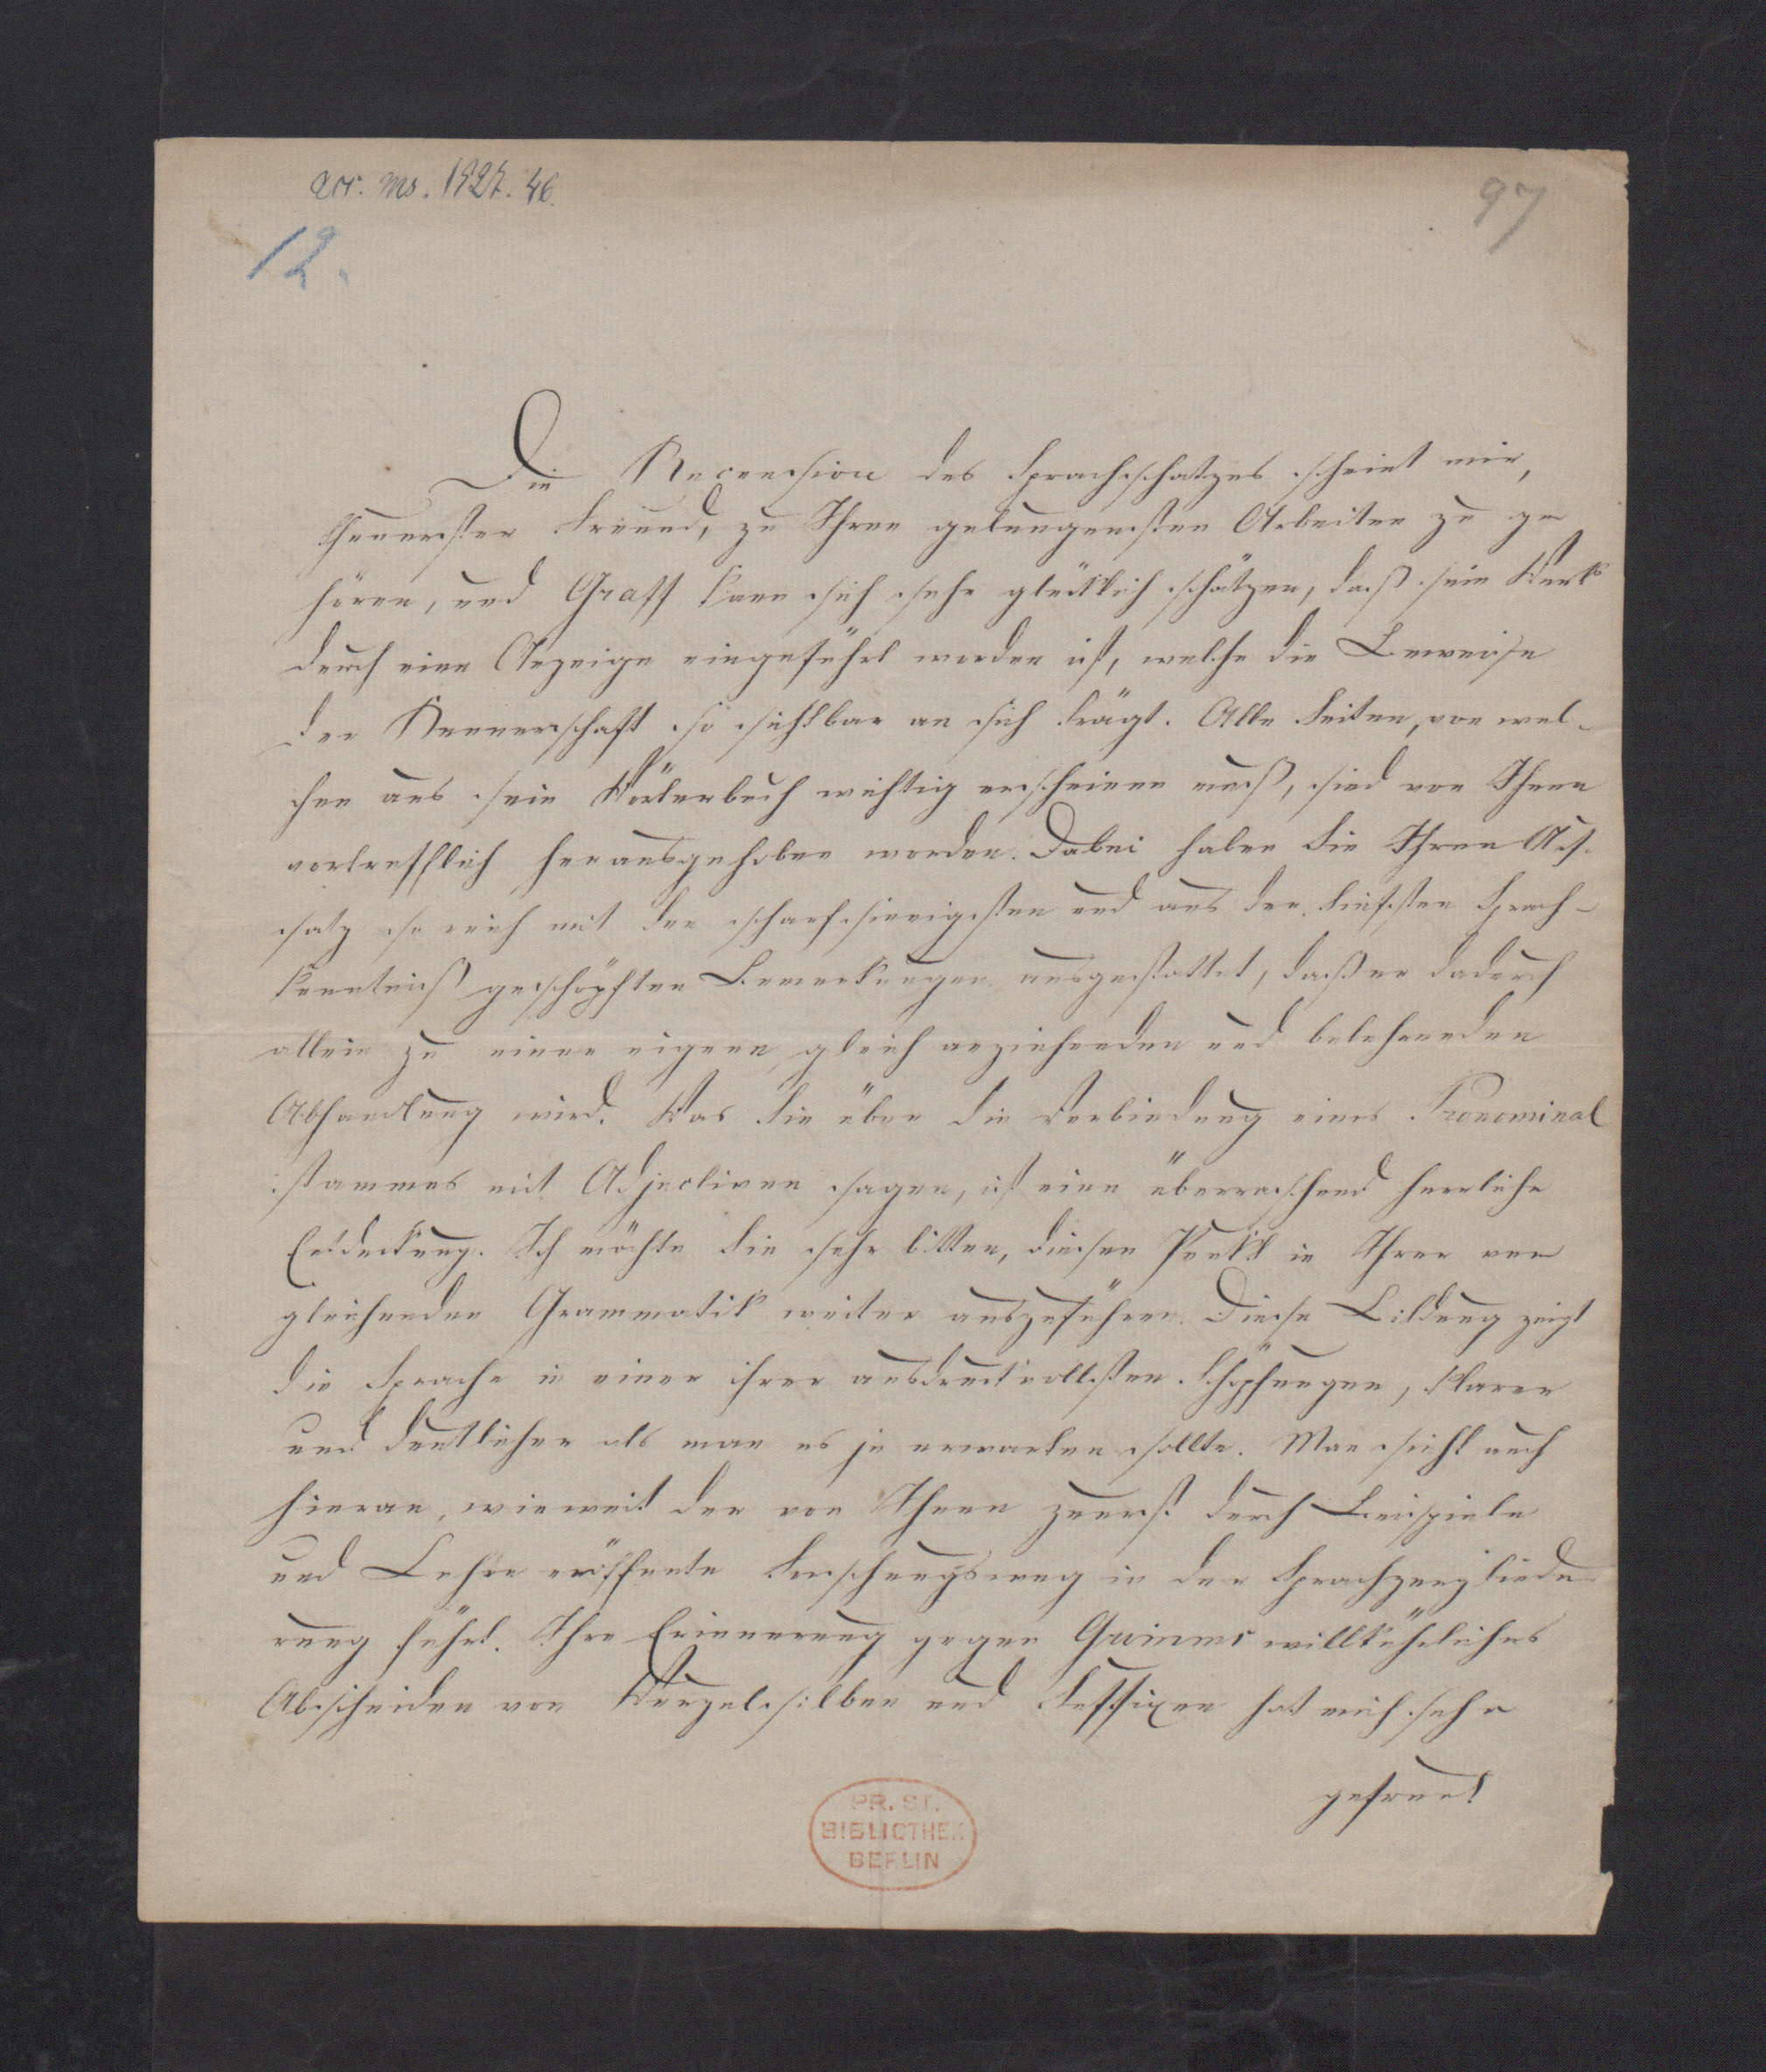 acc. ms. 1927. 46.
97
12.
Die Recension des Sprachschatzes scheint mir,
theuerster Freund, zu Ihren gelungensten Arbeiten zu ge
hören, und Graff kann sich sehr glücklich schätzen, daß sein Werk
durch eine Anzeige eingeführt worden ist, welche die Beweise
der Kennerschaft so sichtbar an sich trägt. Alle Seiten, von wel-
chen aus sein Wörterbuch wichtig erscheinen muß, sind von Ihnen
vortrefflich herausgehoben worden. Dabei haben Sie Ihren Auf-
satz so reich mit den scharfsinnigsten und aus der tiefsten Sprach-
kenntniß geschöpften Bemerkungen ausgestattet, daß er dadurch
allein zu einer eignen, gleich anziehenden und belehrenden
Abhandlung wird. Was Sie über die Verbindung eines Pronominal
stammes mit Adjectiven sagen, ist eine überraschend herrliche
Entdeckung. Ich möchte Sie sehr bitten, diesen Punkt in Ihrer ver
gleichenden Grammatik weiter auszuführen. Diese Bildung zeigt
die Sprache in einer ihrer ausdruckvollsten Schöpfungen, klarer
und deutlicher als man es je erwarten sollte. Man sieht auch
hieran, wie weit der von Ihnen zuerst durch Beispiele
und Lehre eröffnete Forschungsweg in der Sprachzergliede
rung führt. Ihre Erinnerung gegen Grimms willkührliches
Abscheiden von Wurzelsilben und Suffixen hat mich sehr
gefreut
PR. ST.
BIBLIOTHEK
BERLIN